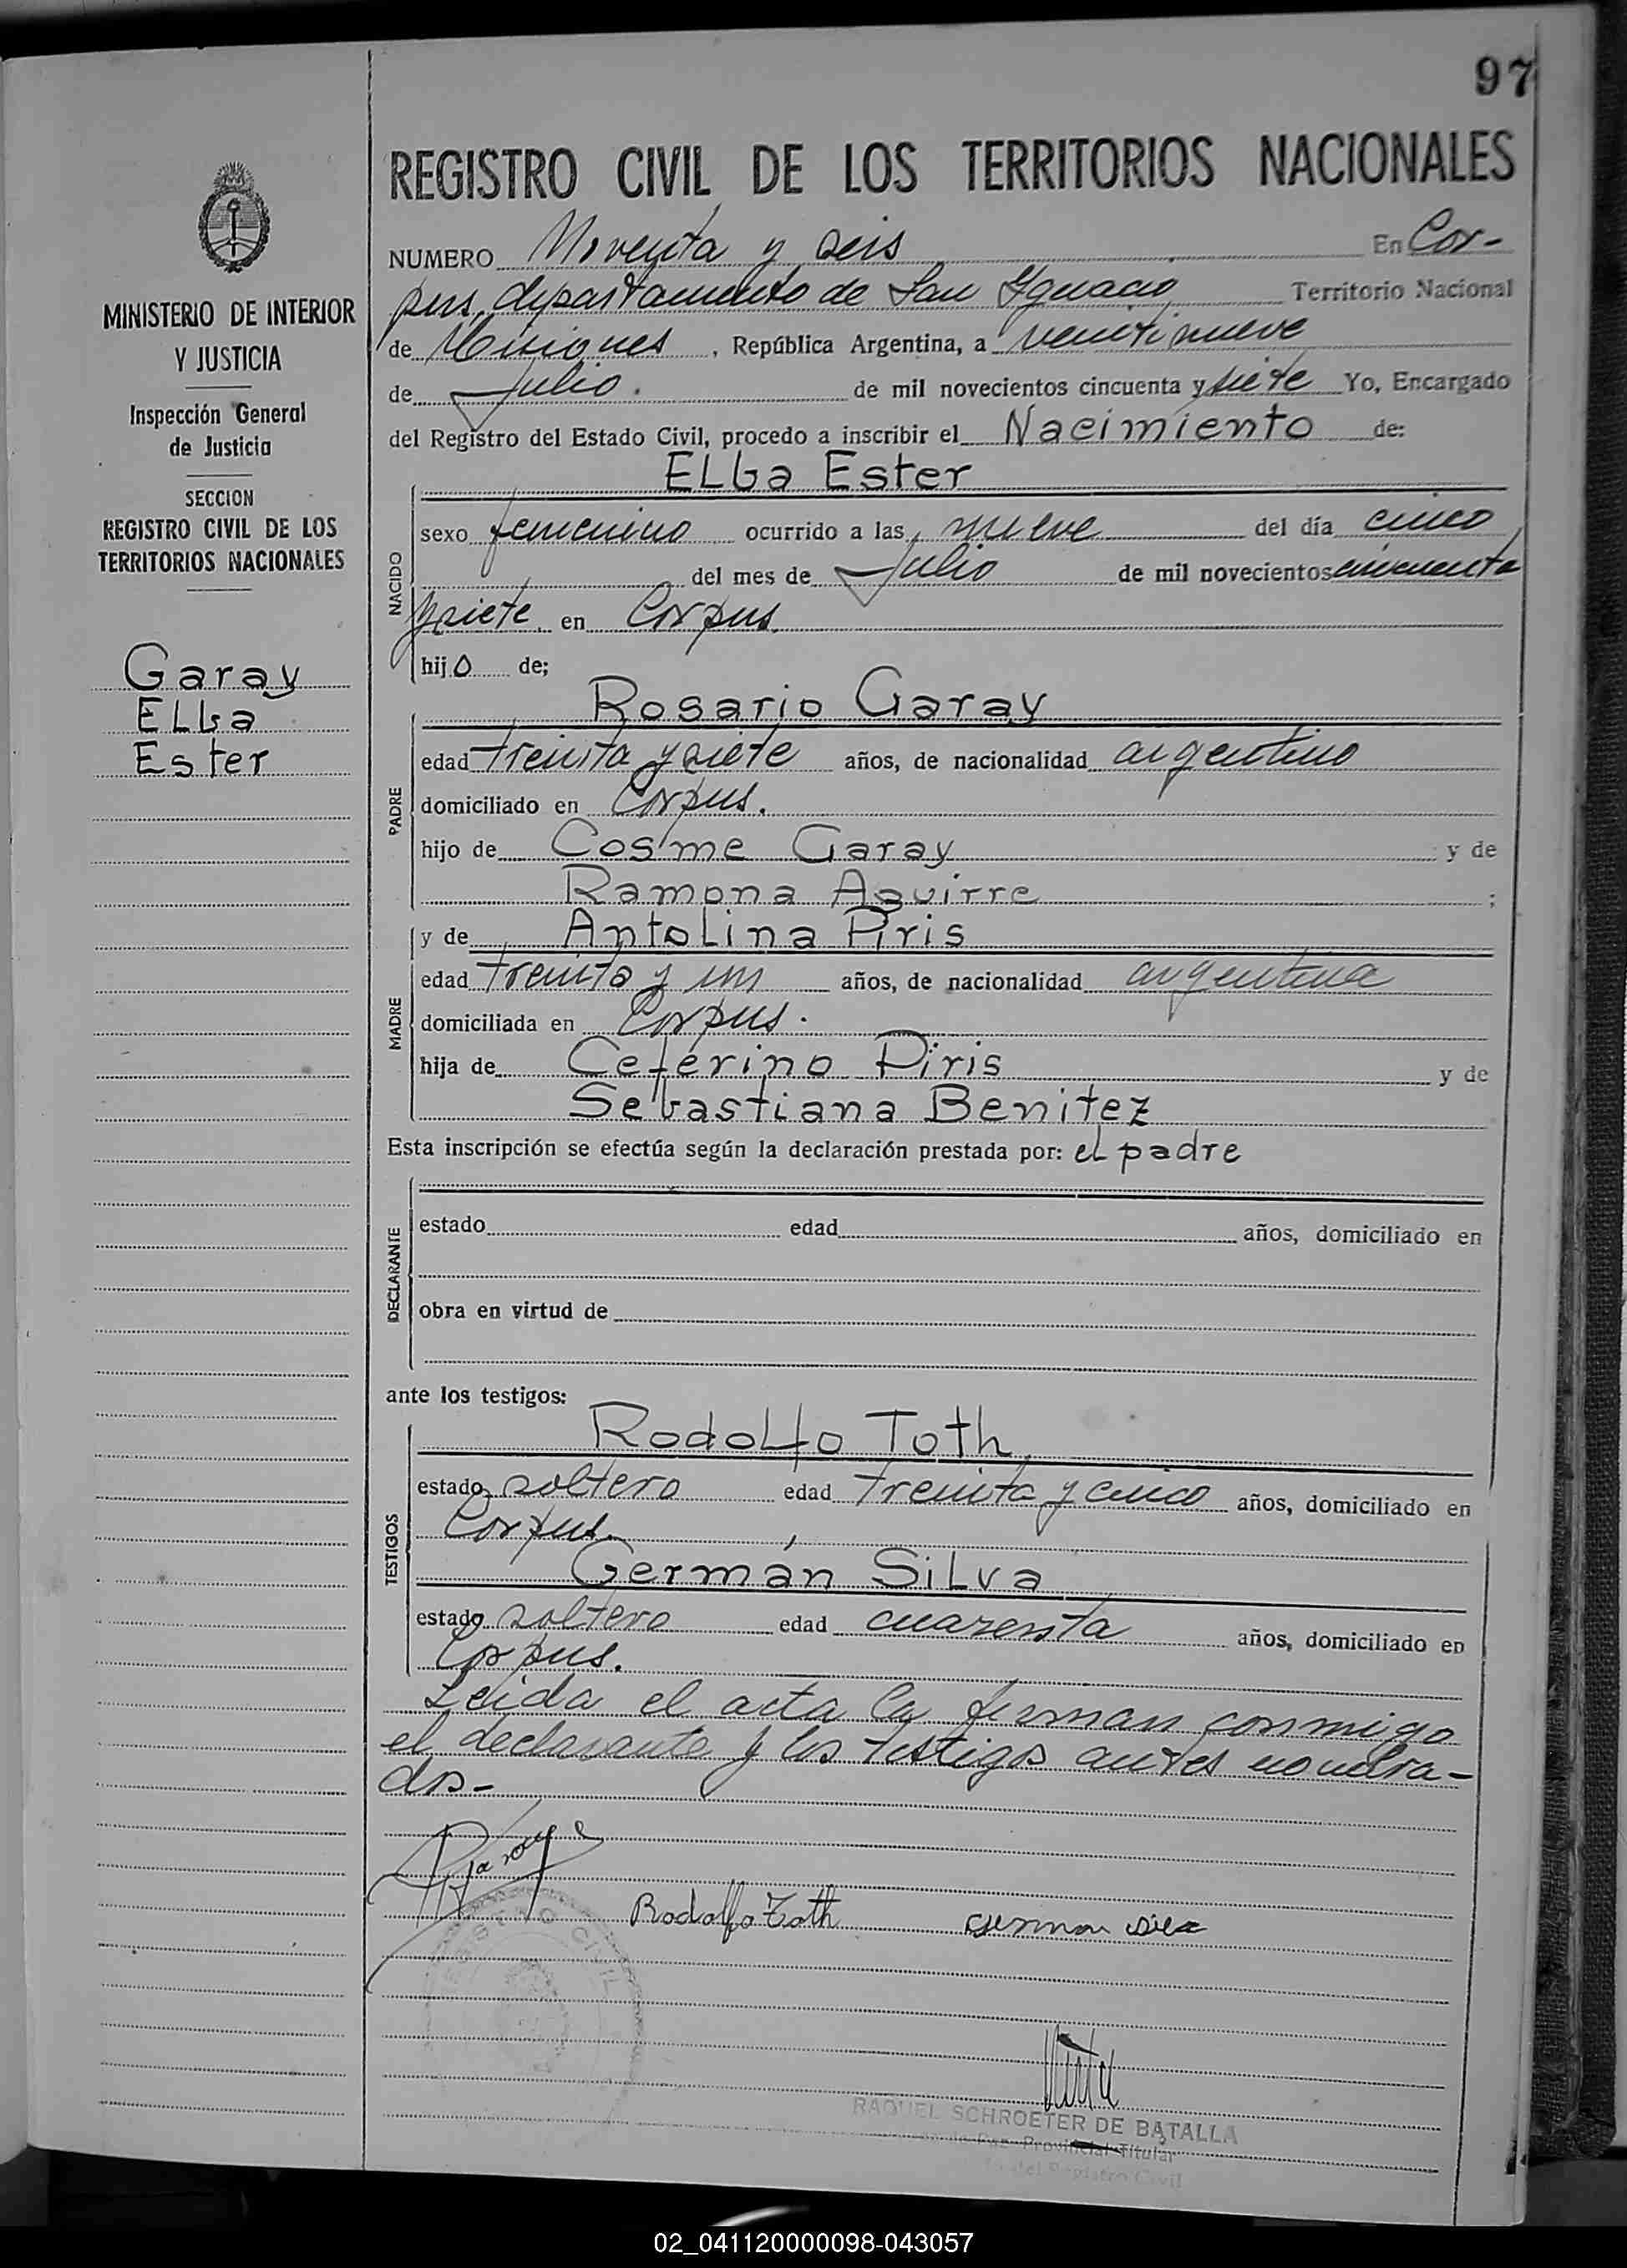 97
REGISTRO CIVIL DE LOS TERRITORIOS NACIONALES
MINISTERIO DE INTERIOR
Y JUSTICIA
Inspección General
de Justicia
SECCION
REGISTRO CIVIL DE LOS
TERRITORIOS NACIONALES
Garay
ELba
Ester
NUMERO Noventa y seis En Cor-
pus, departamento de San Ignacio Territorio Nacional
de Misiones, República Argentina, a veintinueve
de Julio. de mil novecientos cincuenta y siete Yo, Encargado
del Registro del Estado Civil, procedo a inscribir el Nacimiento de:
ELba Ester
NACIDO
sexo femenino ocurrido a las nueve del día cinco
del mes de Julio de mil novecientos cincuenta
y siete en Corpus.
hijo de;
Rosario Garay
PADRE
edad treinta y siete años, de nacionalidad argentino
domiciliado en Corpus.
hijo de Cosme Garay y de
Ramona Aguirre ;
y de Antolina Piris
MADRE
edad treinta y un años, de nacionalidad argentina
domiciliada en Corpus.
hija de Ceferino Piris y de
Sebastiana Benitez
Esta inscripción se efectúa según la declaración prestada por: el padre
DECLARANTE
estado edad años, domiciliado en
obra en virtud de
ante los testigos:
Rodolfo Toth
TESTIGOS
estado soltero edad treinta y cinco años, domiciliado en
Corpus.
Germán Silva
estado soltero edad cuarenta años, domiciliado en
Corpus.
Leida el acta la firman conmigo
el declarante y los testigos antes nombra-
dos-
RGaray
Rodolfo Toth German Silva
REGISTRO CIVIL
RAQUEL SCHROETER DE BATALLA
de Paz Provincial Titular
del Registro Civil
02_041120000098-043057